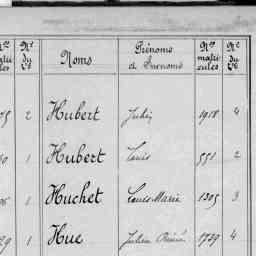 Nos matri cules Nº du Noms Prénoms et Surnoms Nos matri cules Nº du
2 Hubert Jules 1918 4
1 Hubert Louis 551 2
1 Huchet Louis Marie 1305 3
1 Huc Julien 1739 4